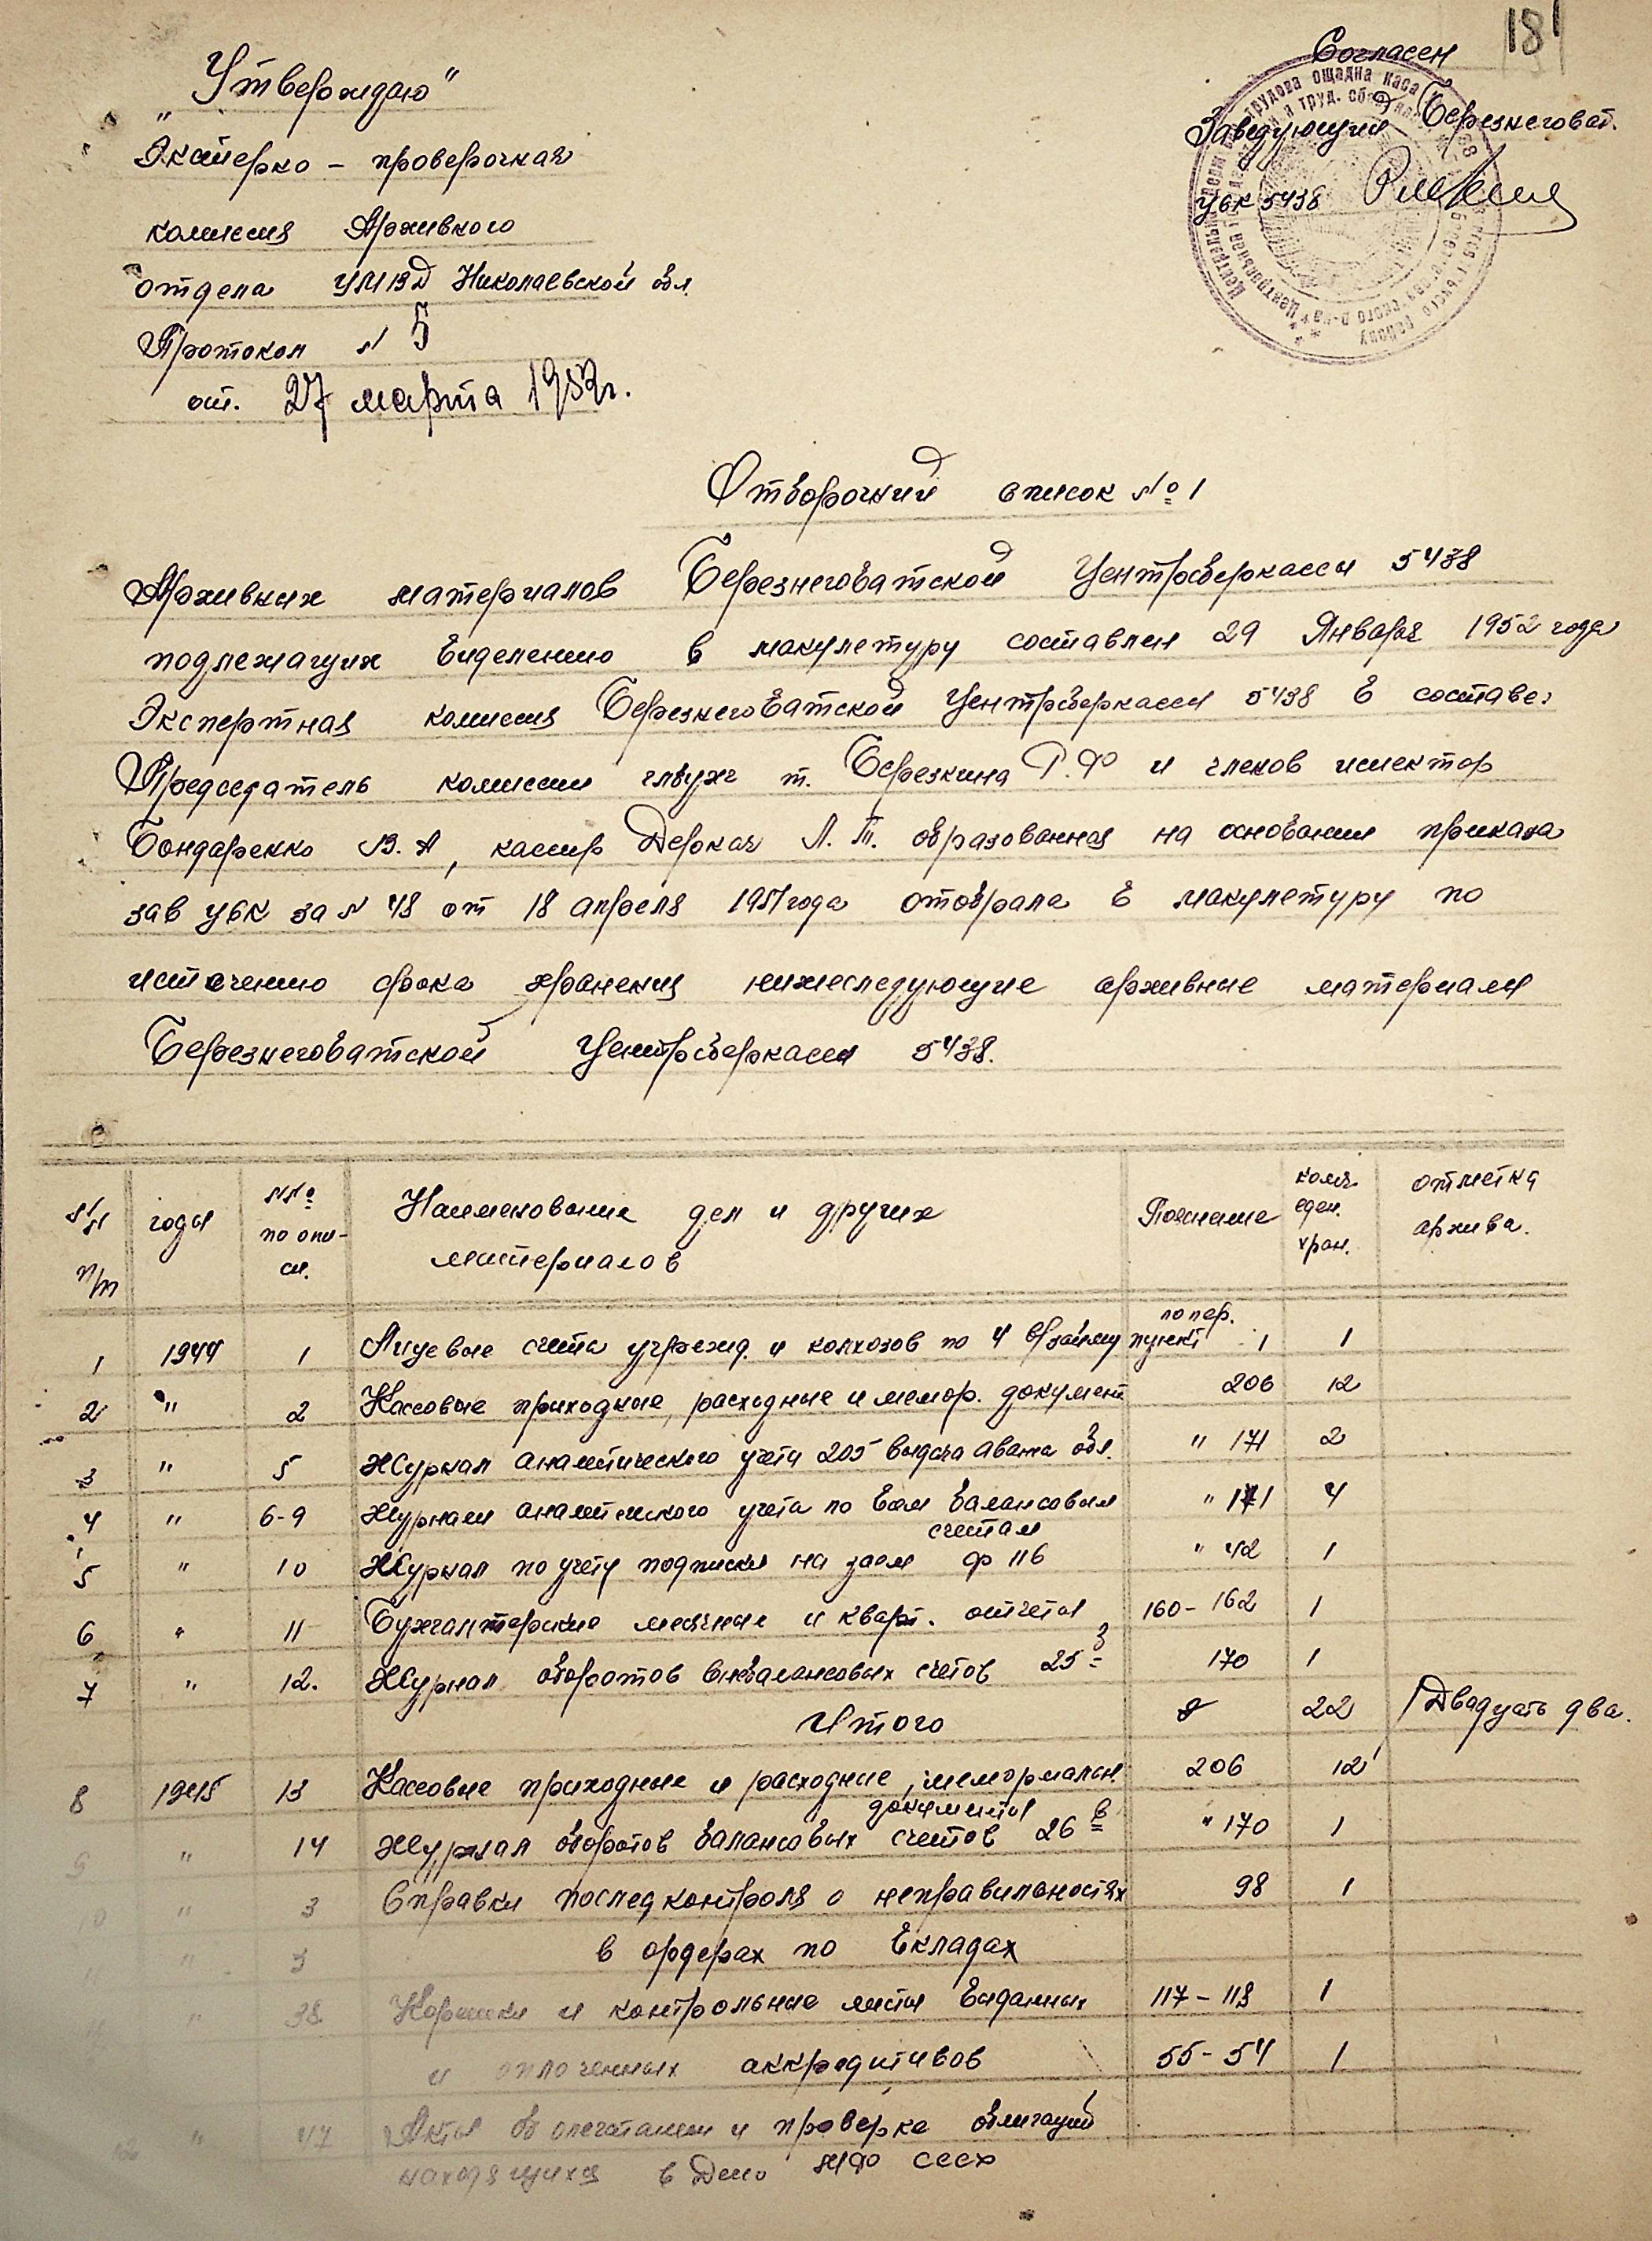 181
„Утверждаю"
Эксперко - проверочная
комиссия Архивного
отдела УМВД Николаевской обл.
Протокол N 5
от. 27 марта 1952г.
Согласен
Заведующий Березнеговат.
ЦСК 5438
Отборочний список № 1
Архивных материалов Березнеговатской Центрсберкассы 5438
подлежащих выделению в макулетуру составлен 29 Января 1952 года
Экспертная комиссия Березнеговатской Центрсберкассы 5438 в составе:
Председатель комиссии глбухг т. Березкина Р.Ф и членов испектор
Бондаренко В. А, кассир Деркач Л. Т. образованная на основании приказа
зав ЦСК за N 48 от 18 апреля 1951 года отобрала в макулетуру по
истечению срока хранения нижеследующие архивные материалы
Березнеговатской Центрсберкассы 5438.
NN п/п годы №№ по опи-си. Наименование дел и других материалов Пояснение колич. един. хран. отметка архива.
по пер.
1 1944 1 Лицевые счета учрежд. и колхозов по 4 в/займу пункт 1 1
2 " 2 Кассовые приходные, расходные и мемор. документ 206 12
3 " 5 Журнал аналитического учета 205 выдача аванса обл. " 171 2
4 " 6-9 Журналы аналитического учета по всем балансовым " 171 4
счетам
5 " 10 Журнал по учету подписки на заем ф 116 " 42 1
6 " 11 Бухгалтерские месячные и кварт. отчеты 160-162 1
7 " 12. Журнал оборотов внебалансовых счетов 25 з 170 1
Итого 22 /Двадцать два.
8 1945 13 Кассовые приходные и расходные, мемориальн. 206 12
документы
9 " 14 Журнал оборотов балансовых счетов 26 в " 170 1
10 " 3 Справки последконтроля о неправильностях 98 1
11 " 3 в ордерах по вкладах
" 38 Корешки и контрольные листы выданных 117-118 1
и оплоченных аккредитивов 55-54 1
" 47 Акты об опечатании и проверке облигаций
находящихся в Депо НКФ СССР